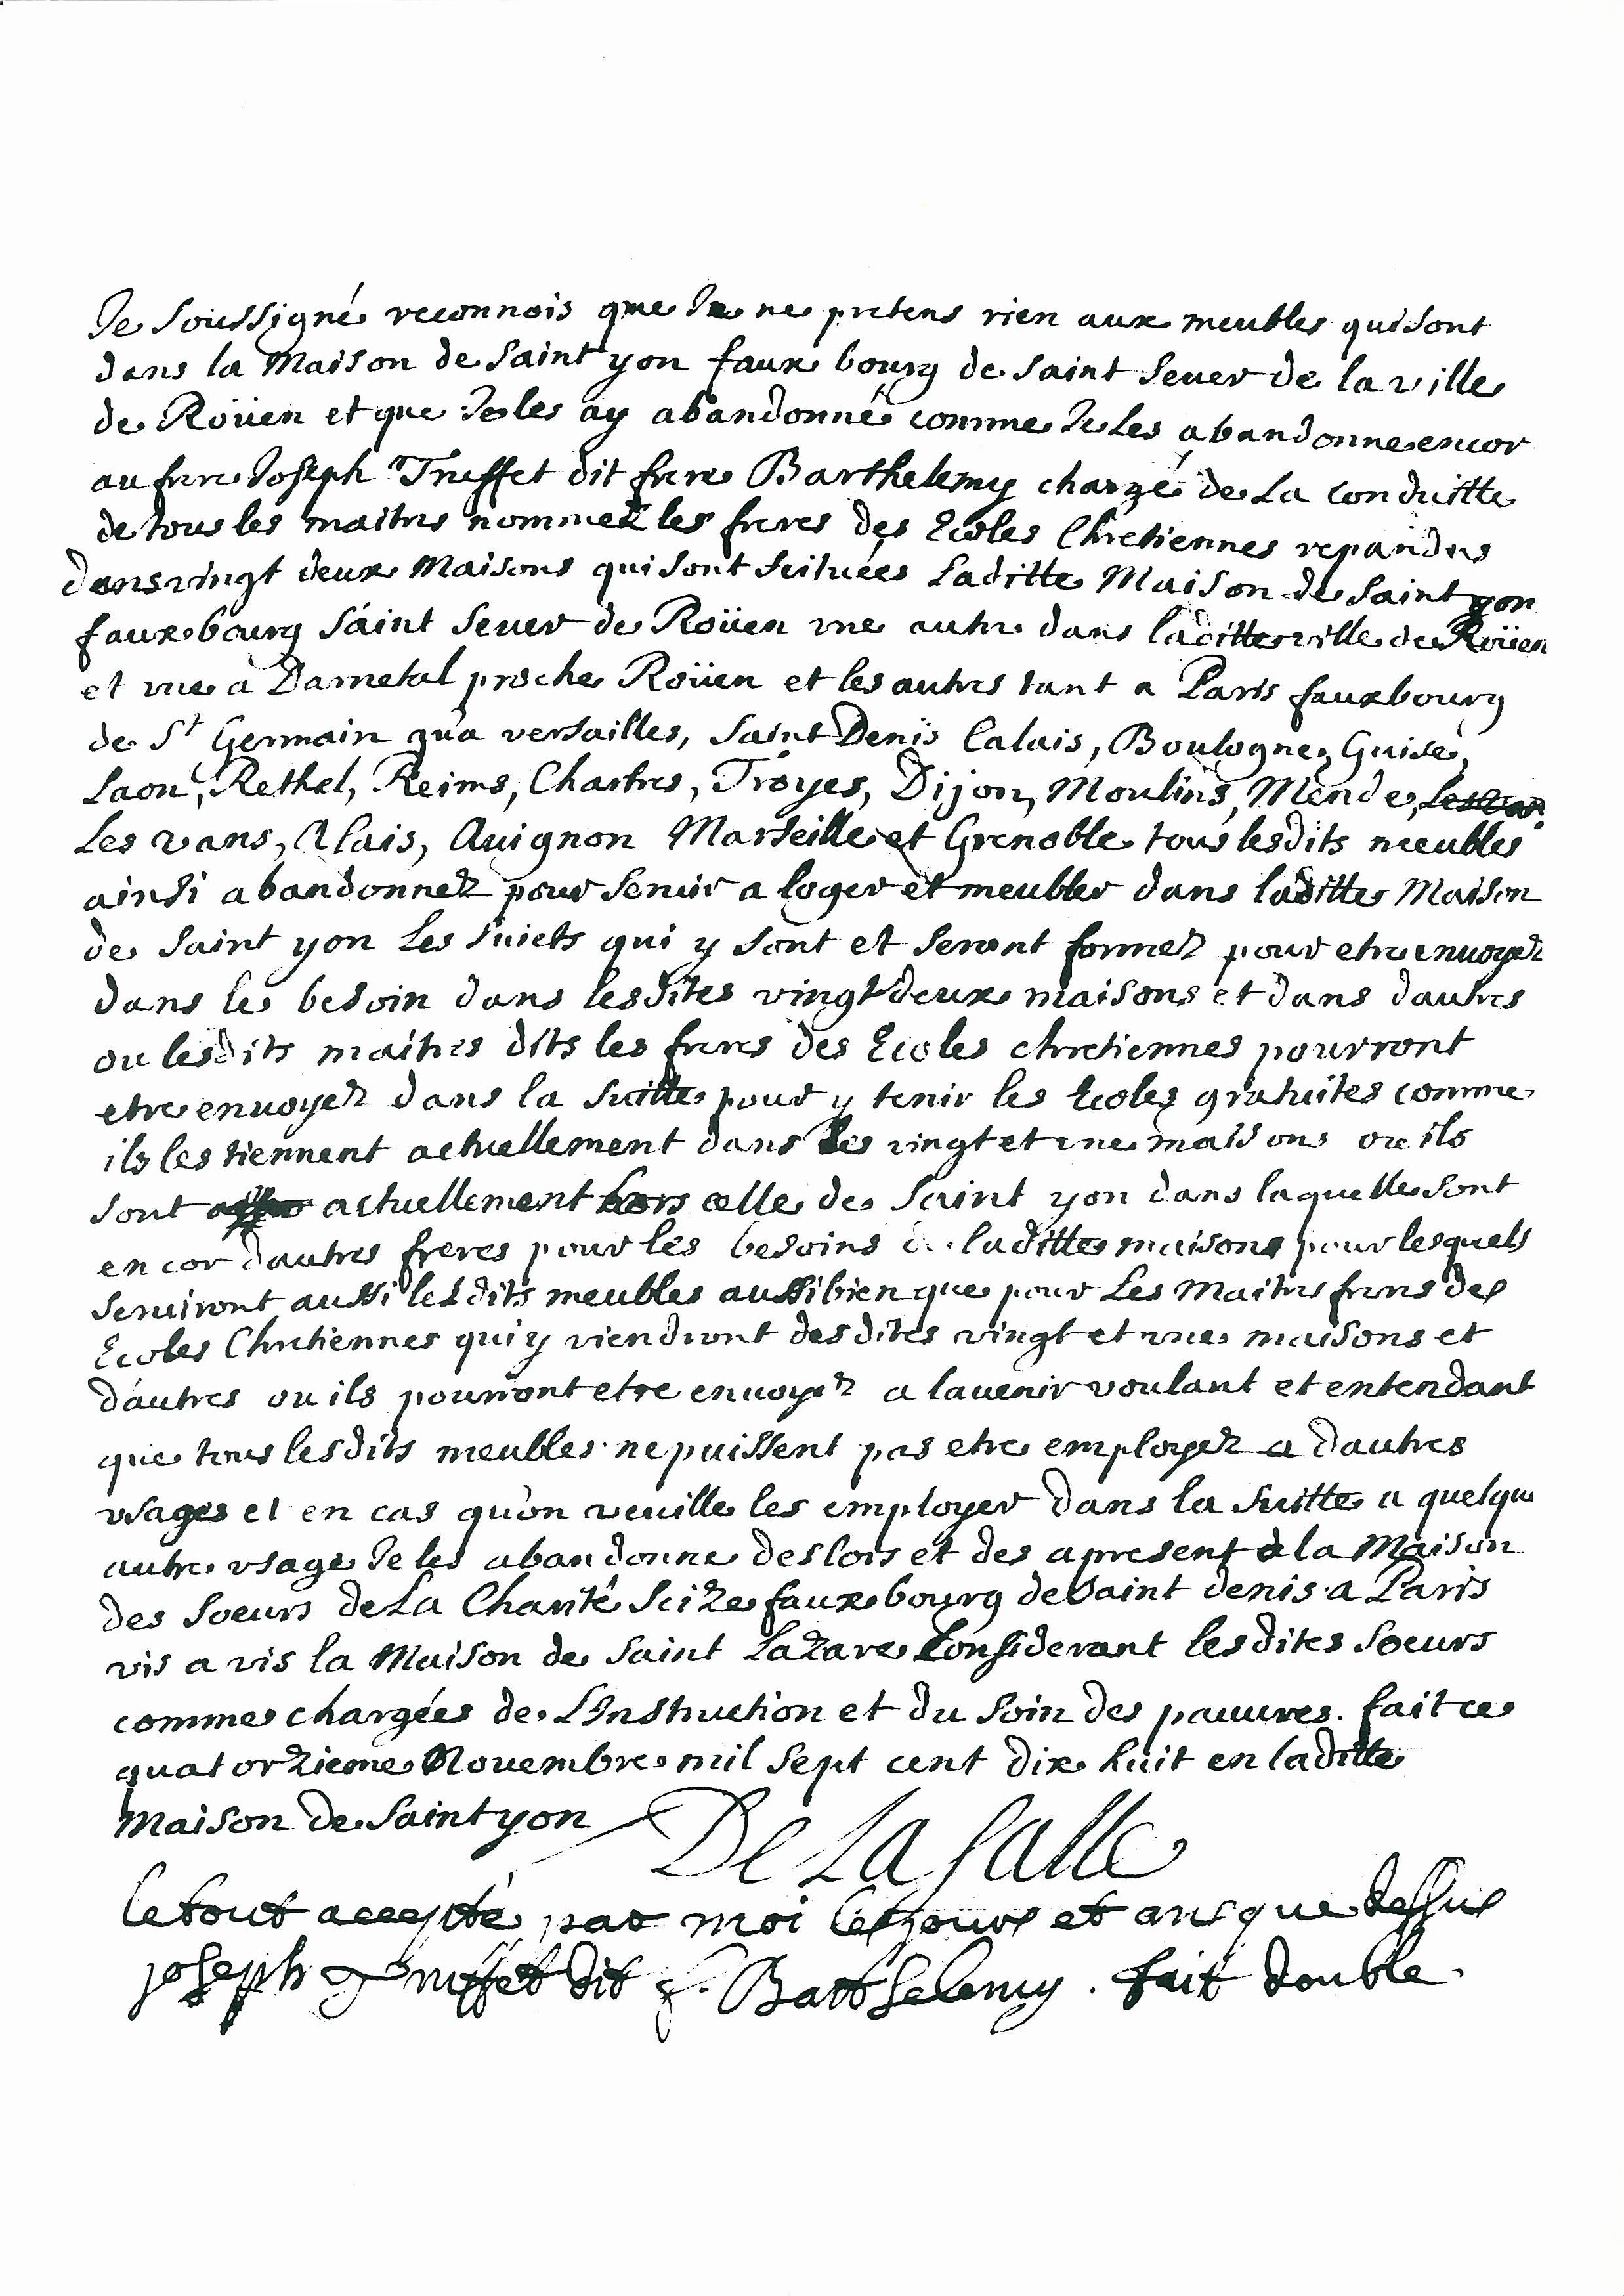 Je soussigné reconnois que Je ne pretens rien aux meubles qui sont
dans la Maison de Saint yon faux bourg de Saint Sever de la ville
de Roüen et que Je les ay abandonné comme Je les abandonne encor
au frere Joseph Truffet dit frere Barthelemy chargé de La conduitte
de tous les maitres nommez les freres des Ecoles Chretiennes repandus
dans vingt deux Maisons qui sont scituées Laditte Maison de Saint yon
faux bourg Saint Sever de Roüen vne autre dans laditte ville de Roüen
et vne a Darnetal proche Roüen et les autres tant a Paris fauxbourg
de St Germain qu'a versailles, Saint Denis Calais, Boulogne, Guise,
Laon, Rethel, Reims, Chartres, Troyes, Dijon, Moulins, Mende, Les Van
Les vans, Alais, Auignon Marseille et Grenoble tous lesdits meubles
ainsi abandonnez pour seruir a loger et meubler dans laditte Maison
de Saint yon Les suiets qui y sont et seront formez pour etre enuoyez
dans le besoin dans lesdites vingt deux maisons et dans dautres
ou lesdits maitres dits les freres des Ecoles chretiennes pourront
etre enuoyez dans la suitte pour y tenir les Ecoles gratuites comme
ils les tiennent actuellement dans les vingt et vne maisons ou ils
sont actuellement hors celle de Saint yon dans laquelle sont
encor dautres freres pour les besoins de laditte maison pour lesquels
seruiront aussi lesdits meubles aussi bien que pour Les Maitres freres des
Ecoles Chretiennes qui y viendront desdites vingt et vne maisons et
d'autres ou ils pourront etre enuoyez a lauenir voulant et entendant
que tous lesdits meubles ne puissent pas etre employez a dautres
vsages et en cas qu'on veuille les employer dans la suitte a quelque
autre vsage Je les abandonne des lors et des apresent a la Maison
des Soeurs de La Charité scize faux bourg de Saint denis a Paris
vis a vis la Maison de Saint Lazare Considerant lesdites Soeurs
comme chargées de L'Instruction et du soin des pauures. fait ce
quatorzieme Nouembre mil sept cent dix huit en laditte
Maison de Saint yon De La Salle
le tout accepté par moi les jours et ans que dessus
joseph Truffet dit f. Barthelemy. fait double.